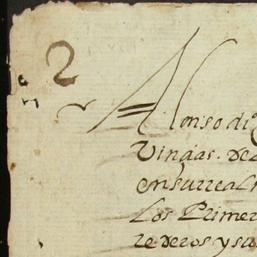 2
Alonso di
Vinaas. de
en su rreal
Los Primer
rederos y su